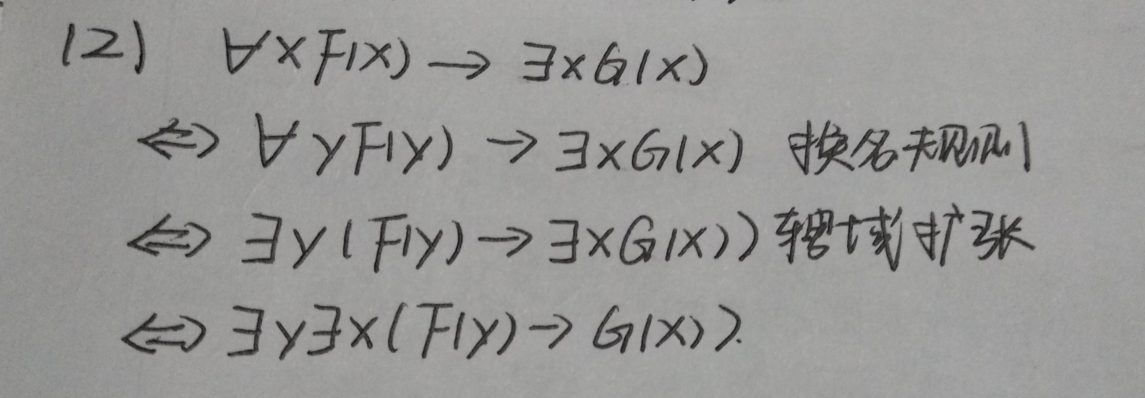 (2) ∀xF(x) → ∃xG(x)
⇔ ∀yF(y) → ∃xG(x) 换名规则
⇔ ∃y(F(y) → ∃xG(x)) 辖域扩张
⇔ ∃y∃x(F(y) → G(x)).